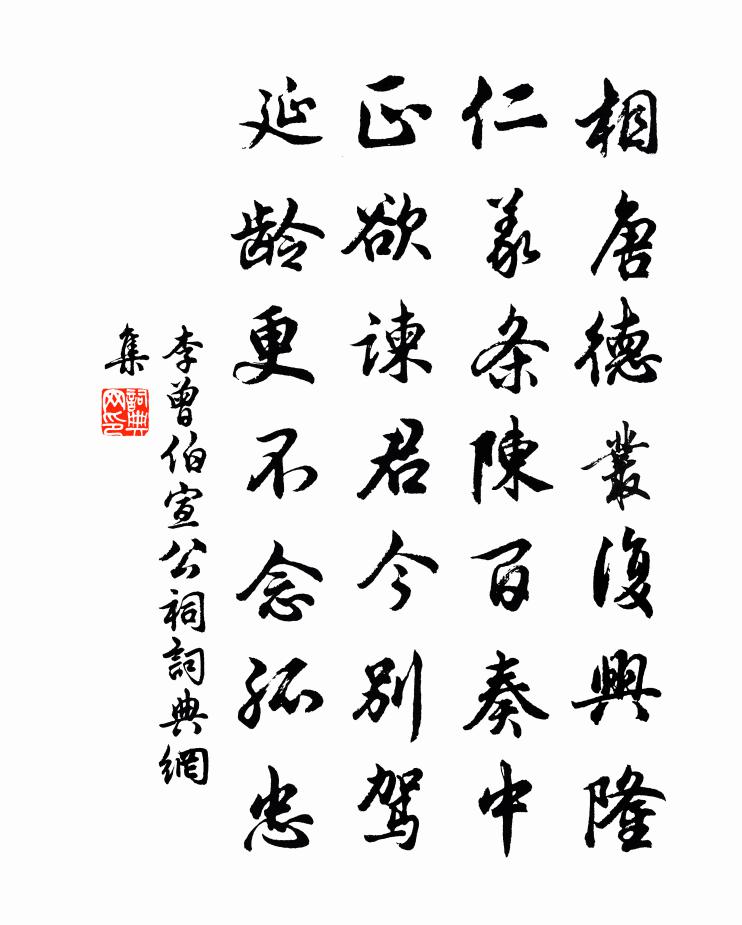 相唐德叢復興隆
仁義条陳百奏中
正欲諫君今別駕
延龄更不念孤忠
李曾伯宣公祠詞典網
集
詞典
网印